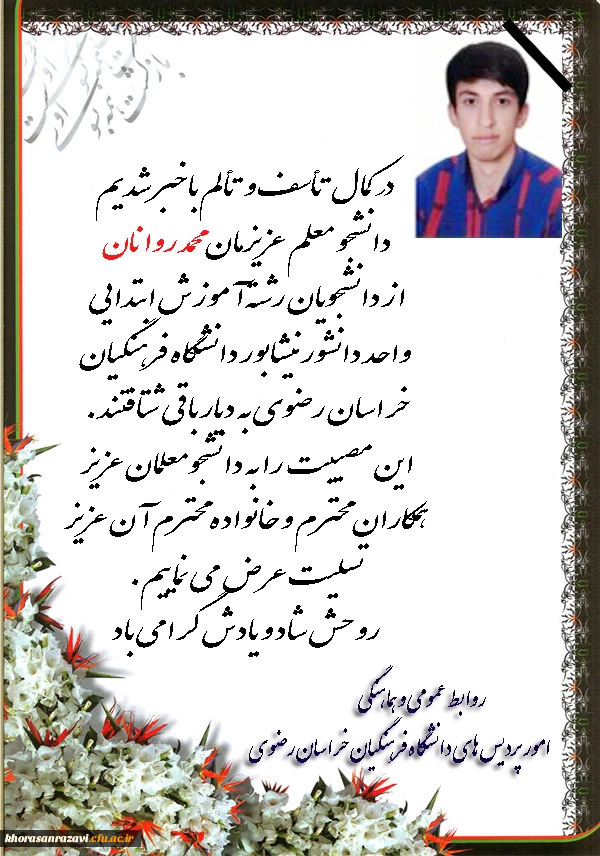 بازگشت همه به سوی اوست
در کمال تأسف و تألم با خبر شدیم
دانشجو معلم عزیزمان محمد روانان
از دانشجویان رشته آموزش ابتدایی
واحد دانشور نیشابور دانشگاه فرهنگیان
خراسان رضوی به دیار باقی شتافتند.
این مصیبت را به دانشجو معلمان عزیز
همکاران محترم و خانواده محترم آن عزیز
تسلیت عرض می نماییم.
روحش شاد و یادش گرامی باد
روابط عمومی و هماهنگی
امور پردیس های دانشگاه فرهنگیان خراسان رضوی
khorasanrazavi.cfu.ac.ir